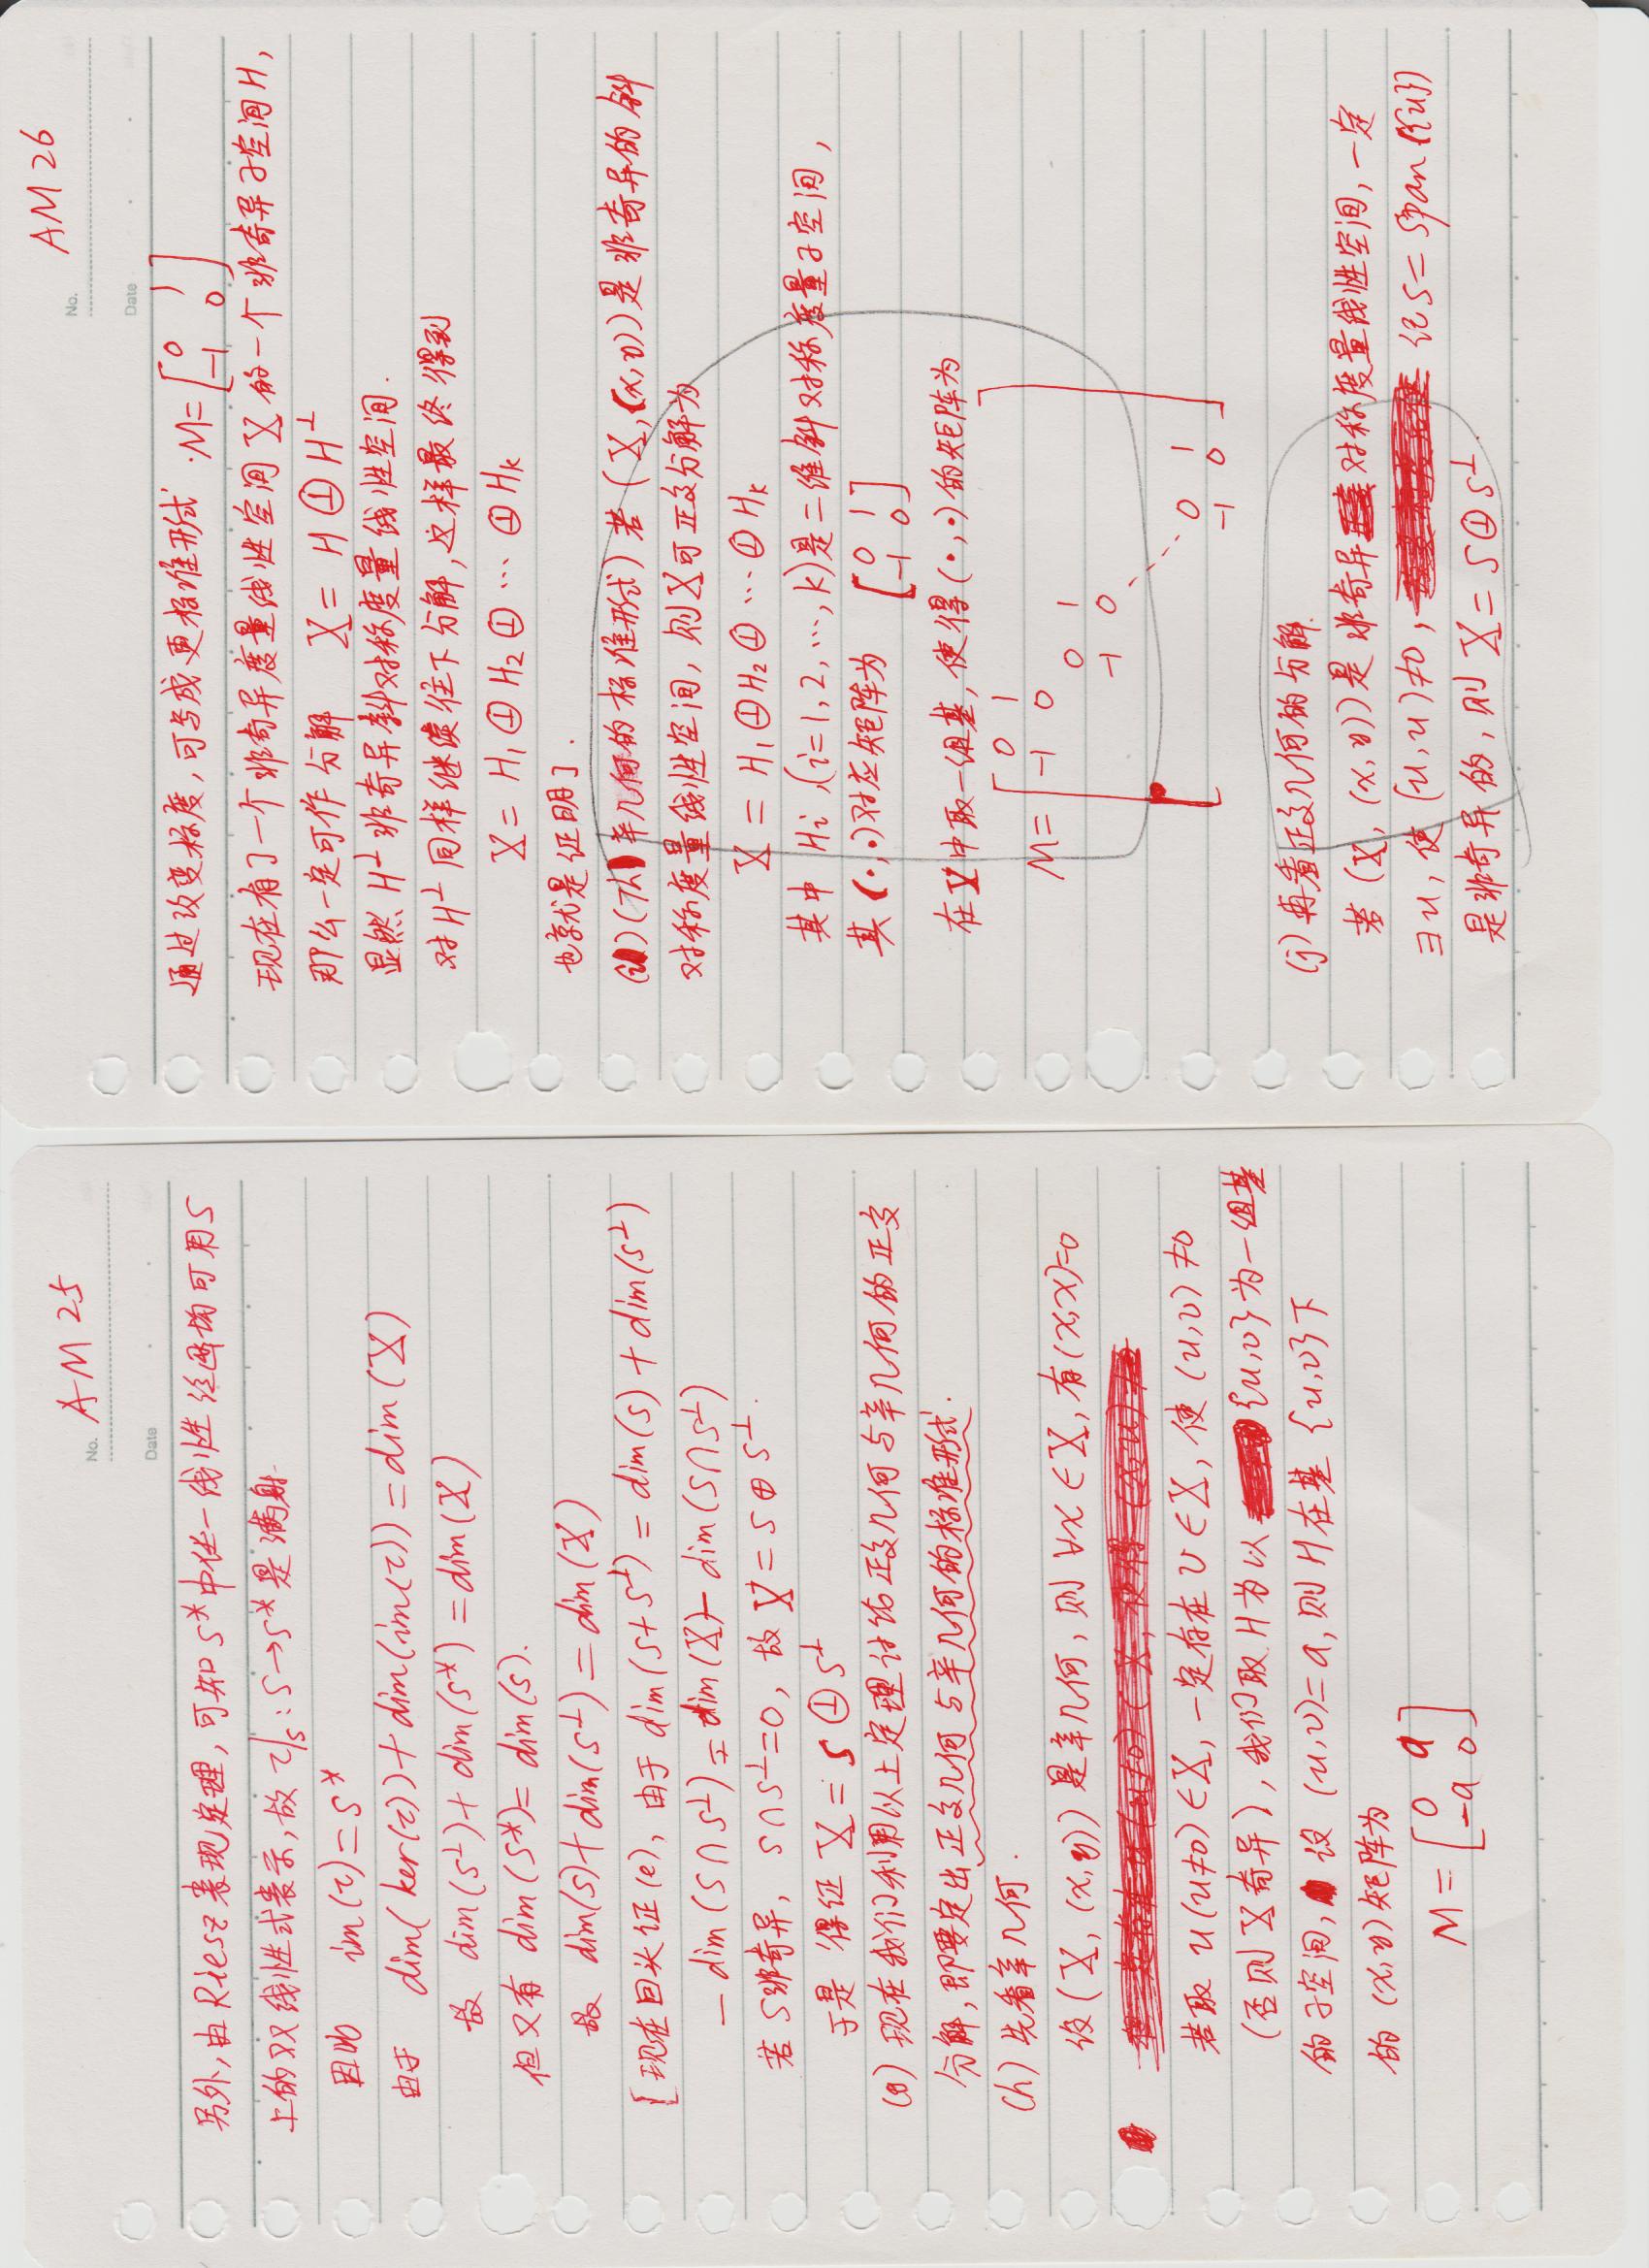 No. AM 25
Date
另外,由Riesz表现定理,可知 S*中任一线性泛函均可用S
上的双线性式表示,故 τ|s : S→S* 是满射.
因此 im(τ)=S*
由于 dim(ker(τ))+dim(im(τ))=dim(X)
故 dim(S⊥)+dim(S*)=dim(X)
但又有 dim(S*)=dim(S).
故 dim(S)+dim(S⊥)=dim(X)
[现在回头证(e),由于 dim(S+S⊥)=dim(S)+dim(S⊥)
-dim(S∩S⊥)=dim(X)-dim(S∩S⊥)
若S非奇异, S∩S⊥=0, 故 X=S⊕S⊥.
于是得证 X=S⦹S⊥
(g) 现在我们利用以上定理讨论正交几何与辛几何的正交
分解,即要定出正交几何与辛几何的标准形式.
(h) 先看辛几何.
设(X,(x,y))是辛几何,则 ∀x∈X,有(x,x)=0
若取 u(u≠0)∈X,一定存在 v∈X,使 (u,v)≠0
(否则X奇异),我们取H为以 {u,v}为一组基
的子空间, 设 (u,v)=a,则H在基 {u,v}下
的 (x,y)矩阵为
M=[0 a
-a 0]
No. AM 26
Date
通过改变标度,可写成更标准形式 M=[0 1
-1 0]
现在有了一个非奇异度量线性空间X的一个非奇异子空间H,
那么一定可作分解 X=H⦹H⊥
显然 H⊥非奇异斜对称度量线性空间.
对H⊥同样继续往下分解,这样最终得到
X=H₁⦹H₂⦹…⦹Hk
也就是证明了.
(i) (Th 辛几何的标准形式) 若 (X,(x,y))是非奇异的斜
对称度量线性空间,则X可正交分解为
X=H₁⦹H₂⦹…⦹Hk
其中 Hi,(i=1,2,…,k)是二维斜对称度量子空间,
其(·,·)对应矩阵为 [0 1
-1 0]
在X中取一组基,使得(·,·)的矩阵为
M=[0 1
-1 0
0 1
-1 0
⋱
0 1
-1 0]
(j) 再看正交几何的分解.
若 (X,(x,y))是非奇异对称度量线性空间,一定
∃u,使 (u,u)≠0, 记S=span({u})
是非奇异的,则 X=S⦹S⊥.